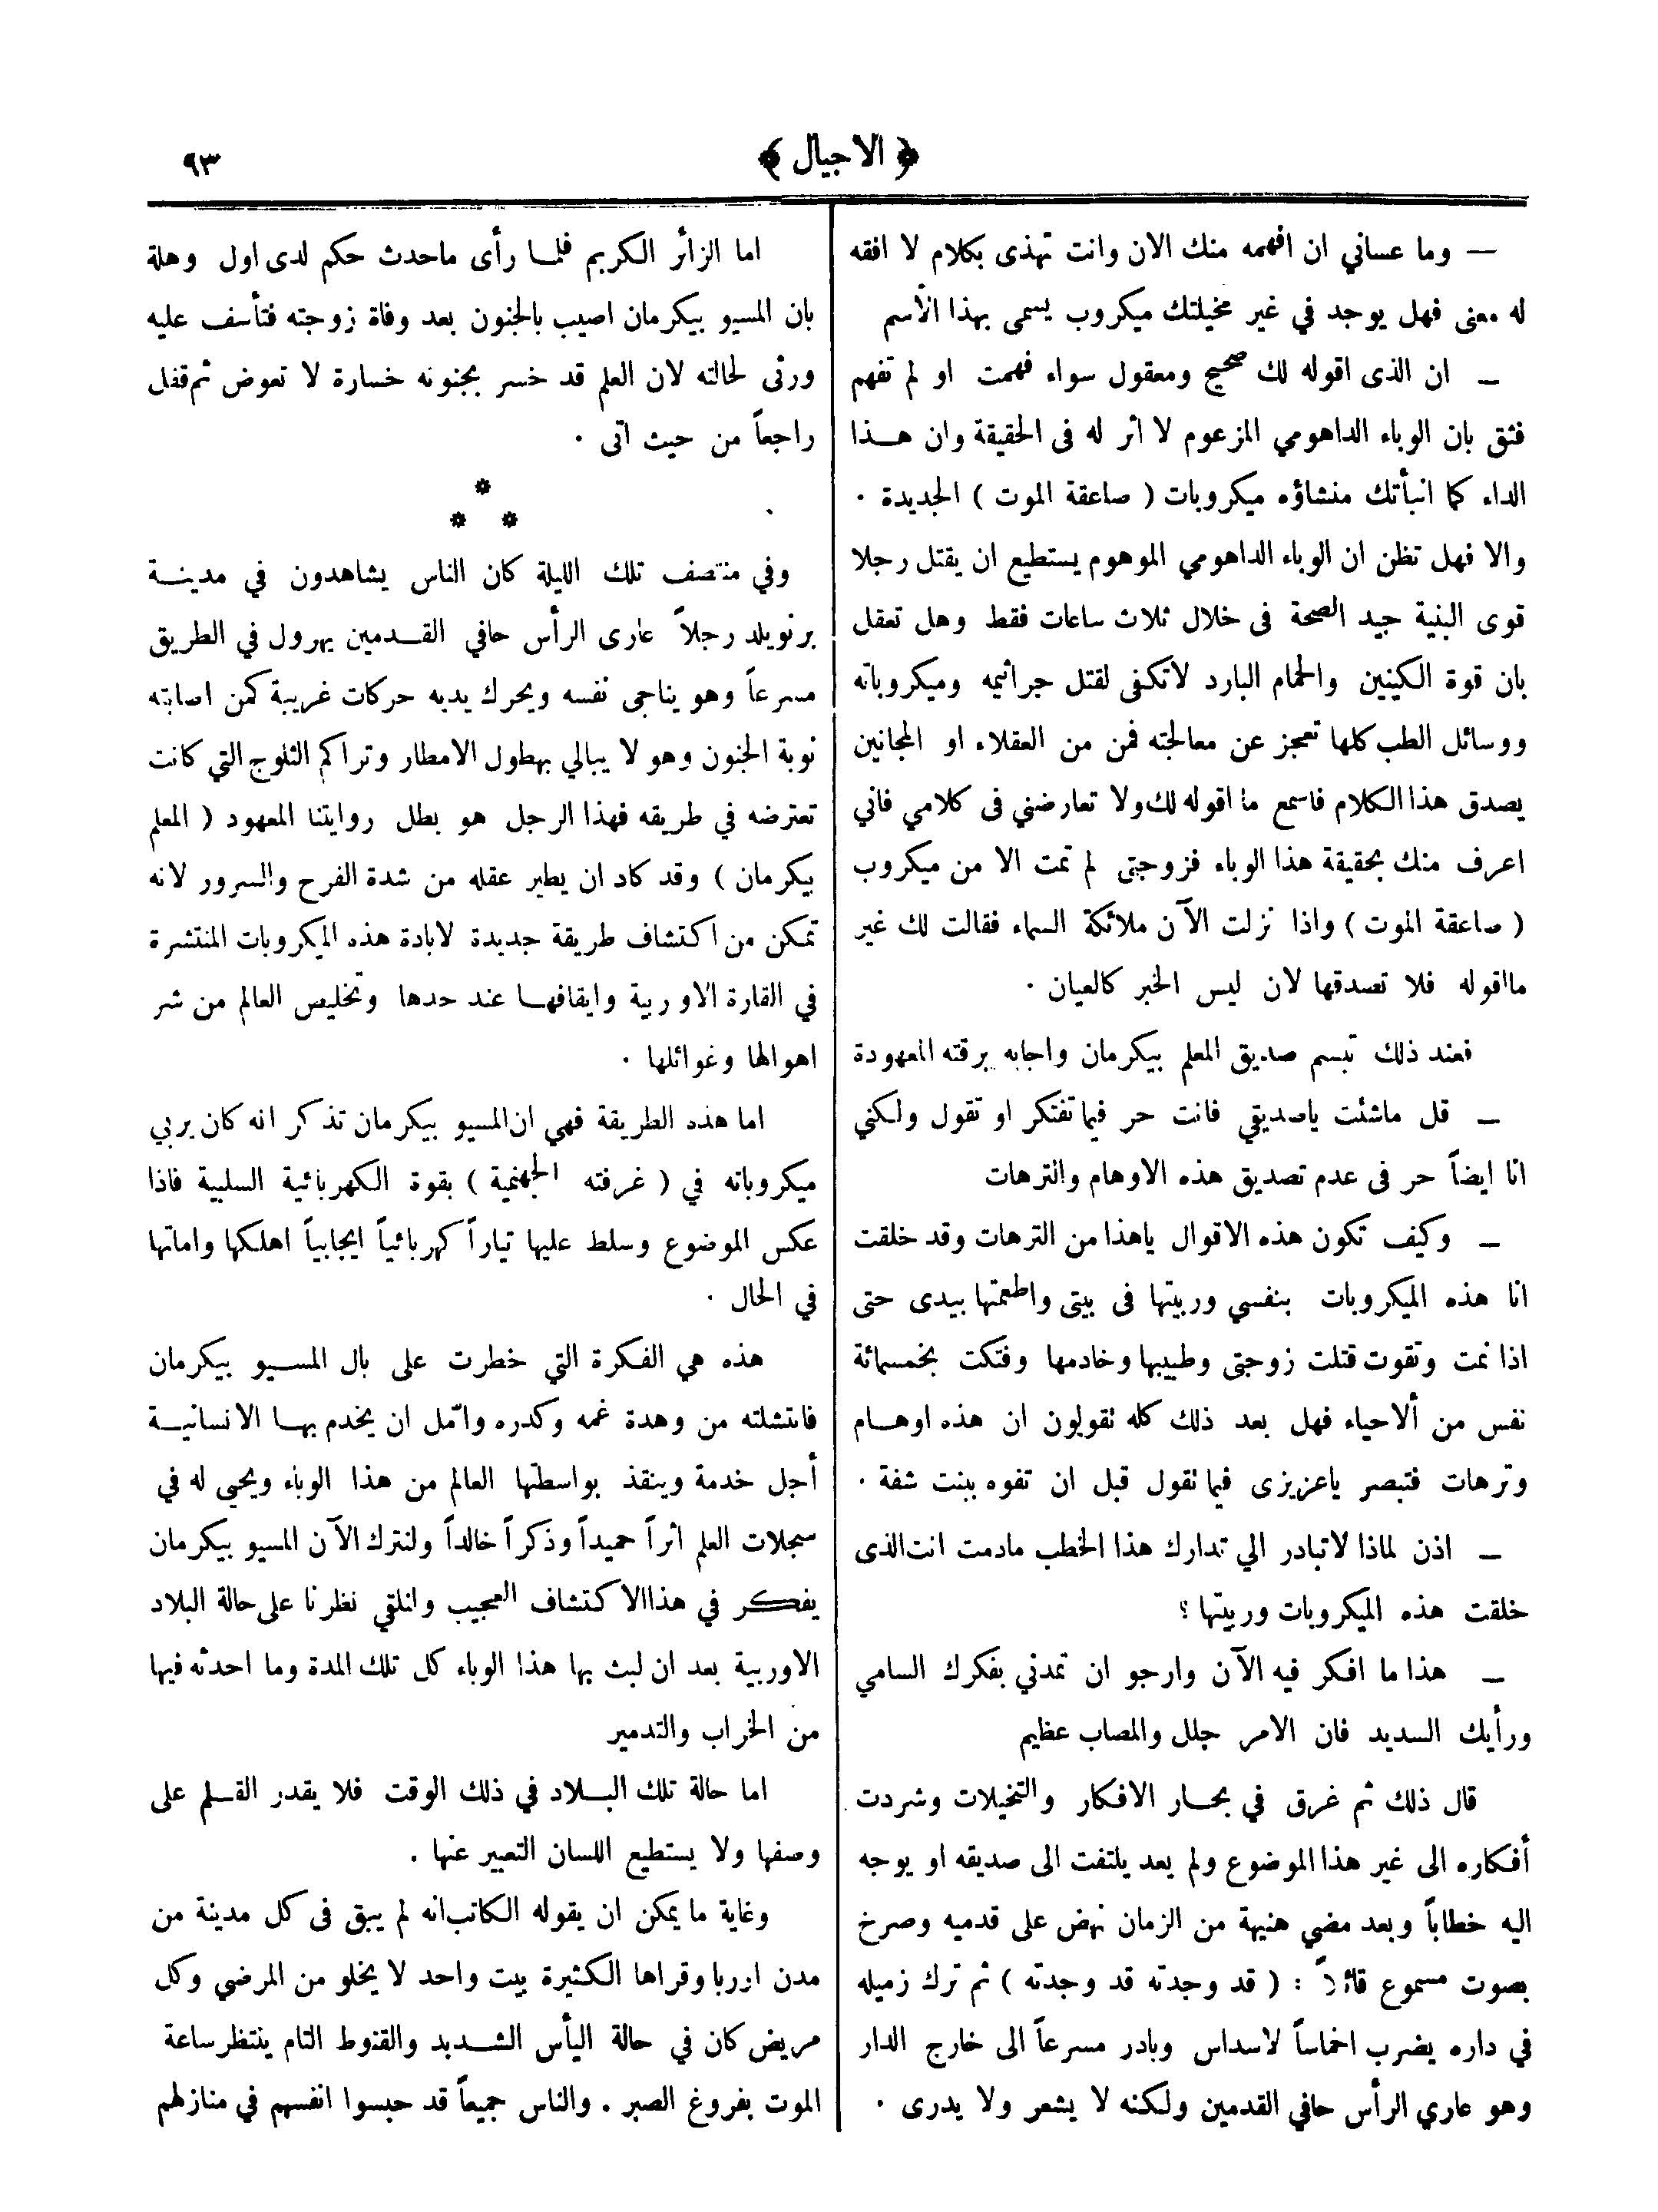 ﴿ الاجيال ﴾
٩٣
— وما عساني ان افهمه منك الان وانت تهذى بكلام لا افقه
له معنى فهل يوجد في غير مخيلتك ميكروب يسمى بهذا الاسم
— ان الذى اقوله لك صحيح ومعقول سواء فهمت او لم تفهم
فثق بان الوباء الداهومي المزعوم لا اثر له فى الحقيقة وان هـذا
الداء كما انبأتك منشاؤه ميكروبات ( صاعقة الموت ) الجديدة .
والا فهل تظن ان الوباء الداهومي الموهوم يستطيع ان يقتل رجلا
قوى البنية جيد الصحة فى خلال ثلاث ساعات فقط وهل تعقل
بان قوة الكينين والحمام البارد لاتكفى لقتل جراثيمه وميكروباته
ووسائل الطب كلها تعجز عن معالجته فمن من العقلاء او المجانين
يصدق هذا الكلام فاسمع ما اقوله لك ولا تعارضني فى كلامي فاني
اعرف منك بحقيقة هذا الوباء فزوجتى لم تمت الا من ميكروب
( صاعقة الموت ) واذا نزلت الآن ملائكة السماء فقالت لك غير
مااقوله فلا تصدقها لان ليس الخبر كالعيان .
فعند ذلك تبسم صديق المعلم بيكرمان واجابه برقته المعهودة
— قل ماشئت ياصديقي فانت حر فيما تفتكر او تقول ولكني
انا ايضاً حر فى عدم تصديق هذه الاوهام والترهات
— وكيف تكون هذه الاقوال ياهذا من الترهات وقد خلقت
انا هذه الميكروبات بنفسي وربيتها فى بيتى واطعمتها بيدى حتى
اذا نمت وتقوت قتلت زوجتى وطبيبها وخادمها وفتكت بخمسمائة
نفس من ألاحياء فهل بعد ذلك كله تقولون ان هذه اوهـام
وترهات فتبصر ياعزيزى فيما تقول قبل ان تفوه ببنت شفة .
— اذن لماذا لاتبادر الي تدارك هذا الخطب مادمت انت الذى
خلقت هذه الميكروبات وربيتها ؟
— هذا ما افكر فيه الآن وارجو ان تمدني بفكرك السامي
ورأيك السديد فان الامر جلل والمصاب عظيم
قال ذلك ثم غرق في بحـار الافكار والتخيلات وشردت
أفكاره الى غير هذا الموضوع ولم يعد يلتفت الى صديقه او يوجه
اليه خطاباً وبعد مضي هنيهة من الزمان نهض على قدميه وصرخ
بصوت مسموع قائلاً : ( قد وجدته قد وجدته ) ثم ترك زميله
في داره يضرب اخماساً لاسداس وبادر مسرعاً الى خارج الدار
وهو عاري الرأس حافي القدمين ولكنه لا يشعر ولا يدرى .
اما الزائر الكريم فلمـا رأى ماحدث حكم لدى اول وهلة
بان المسيو بيكرمان اصيب بالجنون بعد وفاة زوجته فتأسف عليه
ورثى لحالته لان العلم قد خسر بجنونه خسارة لا تعوض ثم قفل
راجعاً من حيث اتى .
*
* *
وفي منتصف تلك الليلة كان الناس يشاهدون في مدينـة
برنويلد رجلاً عارى الرأس حافي القـدمين يهرول في الطريق
مسرعاً وهو يناجى نفسه ويحرك يديه حركات غريبة كمن اصابته
نوبة الجنون وهو لا يبالي بهطول الامطار وتراكم الثلوج التي كانت
تعترضه في طريقه فهذا الرجل هو بطل روايتنا المعهود ( المعلم
بيكرمان ) وقد كاد ان يطير عقله من شدة الفرح والسرور لانه
تمكن من اكتشاف طريقة جديدة لابادة هذه الميكروبات المنتشرة
في القارة الاوربية وايقافهـا عند حدها وتخليص العالم من شر
اهوالها وغوائلها .
اما هذه الطريقة فهي ان المسيو بيكرمان تذكر انه كان يربي
ميكروباته في ( غرفته الجهنمية ) بقوة الكهربائية السلبية فاذا
عكس الموضوع وسلط عليها تياراً كهربائياً ايجابياً اهلكها واماتها
في الحال .
هذه هي الفكرة التي خطرت على بال المسـيو بيكرمان
فانتشلته من وهدة غمه وكدره وامّل ان يخدم بهـا الانسانيـة
أجل خدمة وينقذ بواسطتها العالم من هذا الوباء ويحيى له في
سجلات العلم اثراً حميداً وذكراً خالداً ولنترك الآن المسيو بيكرمان
يفكر في هذاالاكتشاف العجيب ولنلقي نظرنا على حالة البلاد
الاوربية بعد ان لبث بها هذا الوباء كل تلك المدة وما احدثه فيها
من الخراب والتدمير
اما حالة تلك البـلاد في ذلك الوقت فلا يقدر القـلم على
وصفها ولا يستطيع اللسان التعبير عنها .
وغاية ما يمكن ان يقوله الكاتب انه لم يبق فى كل مدينة من
مدن اوربا وقراها الكثيرة بيت واحد لا يخلو من المرضي وكل
مريض كان في حالة اليأس الشـديد والقنوط التام ينتظر ساعة
الموت بفروغ الصبر . والناس جميعاً قد حبسوا انفسهم في منازلهم